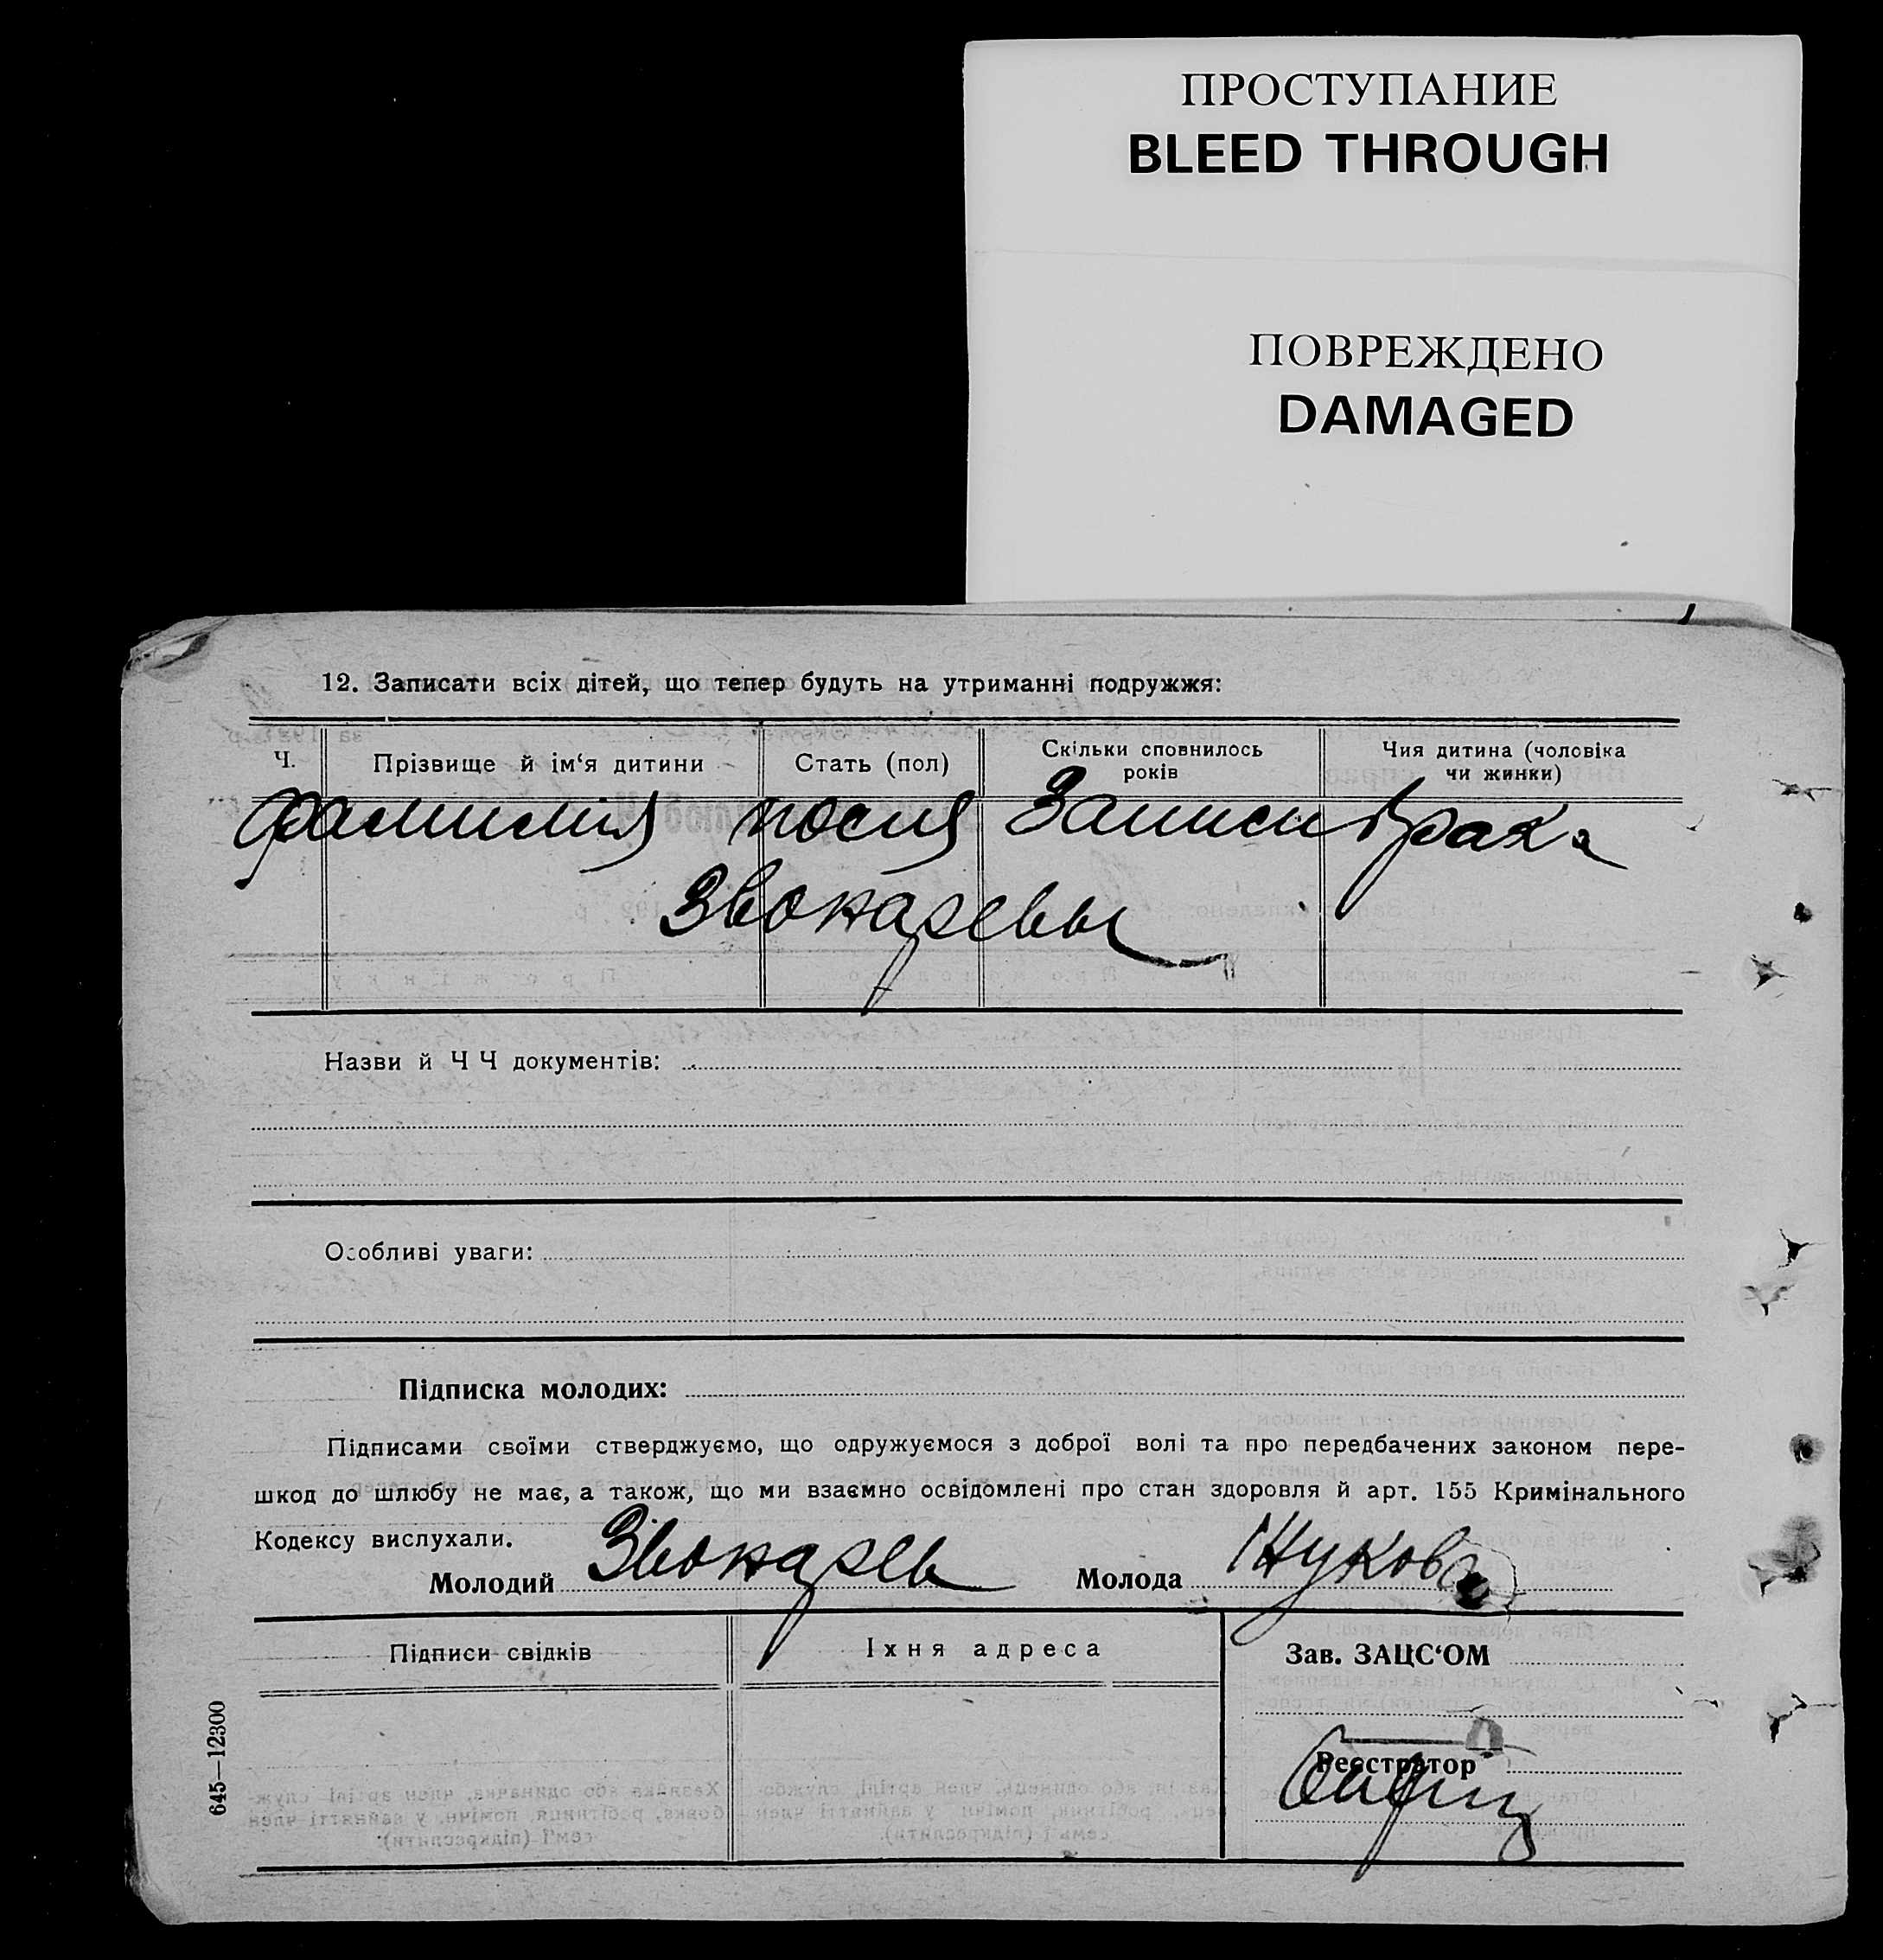 ПРОСТУПАНИЕ
BLEED THROUGH
ПОВРЕЖДЕНО
DAMAGED
12. Записати всіх дітей, що тепер будуть на утриманні подружжя:
Ч.
Прізвище й ім‘я дитини
Стать (пол)
Скільки сповнилось
років
Чия дитина (чоловіка
чи жинки)
Фамилия после записи брака
Звонаревы
Назви й Ч Ч документів:
Особливі уваги:
Підписка молодих:
Підписами своїми стверджуємо, що одружуємося з доброї волі та про передбачених законом пере-
шкод до шлюбу не має, а також, що ми взаємно освідомлені про стан здоровля й арт. 155 Кримінального
Кодексу вислухали.
Молодий Звонарев Молода Жукова
Підписи свідків
Їхня адреса
Зав. ЗАЦС‘ОМ
Реєстратор
645—12300